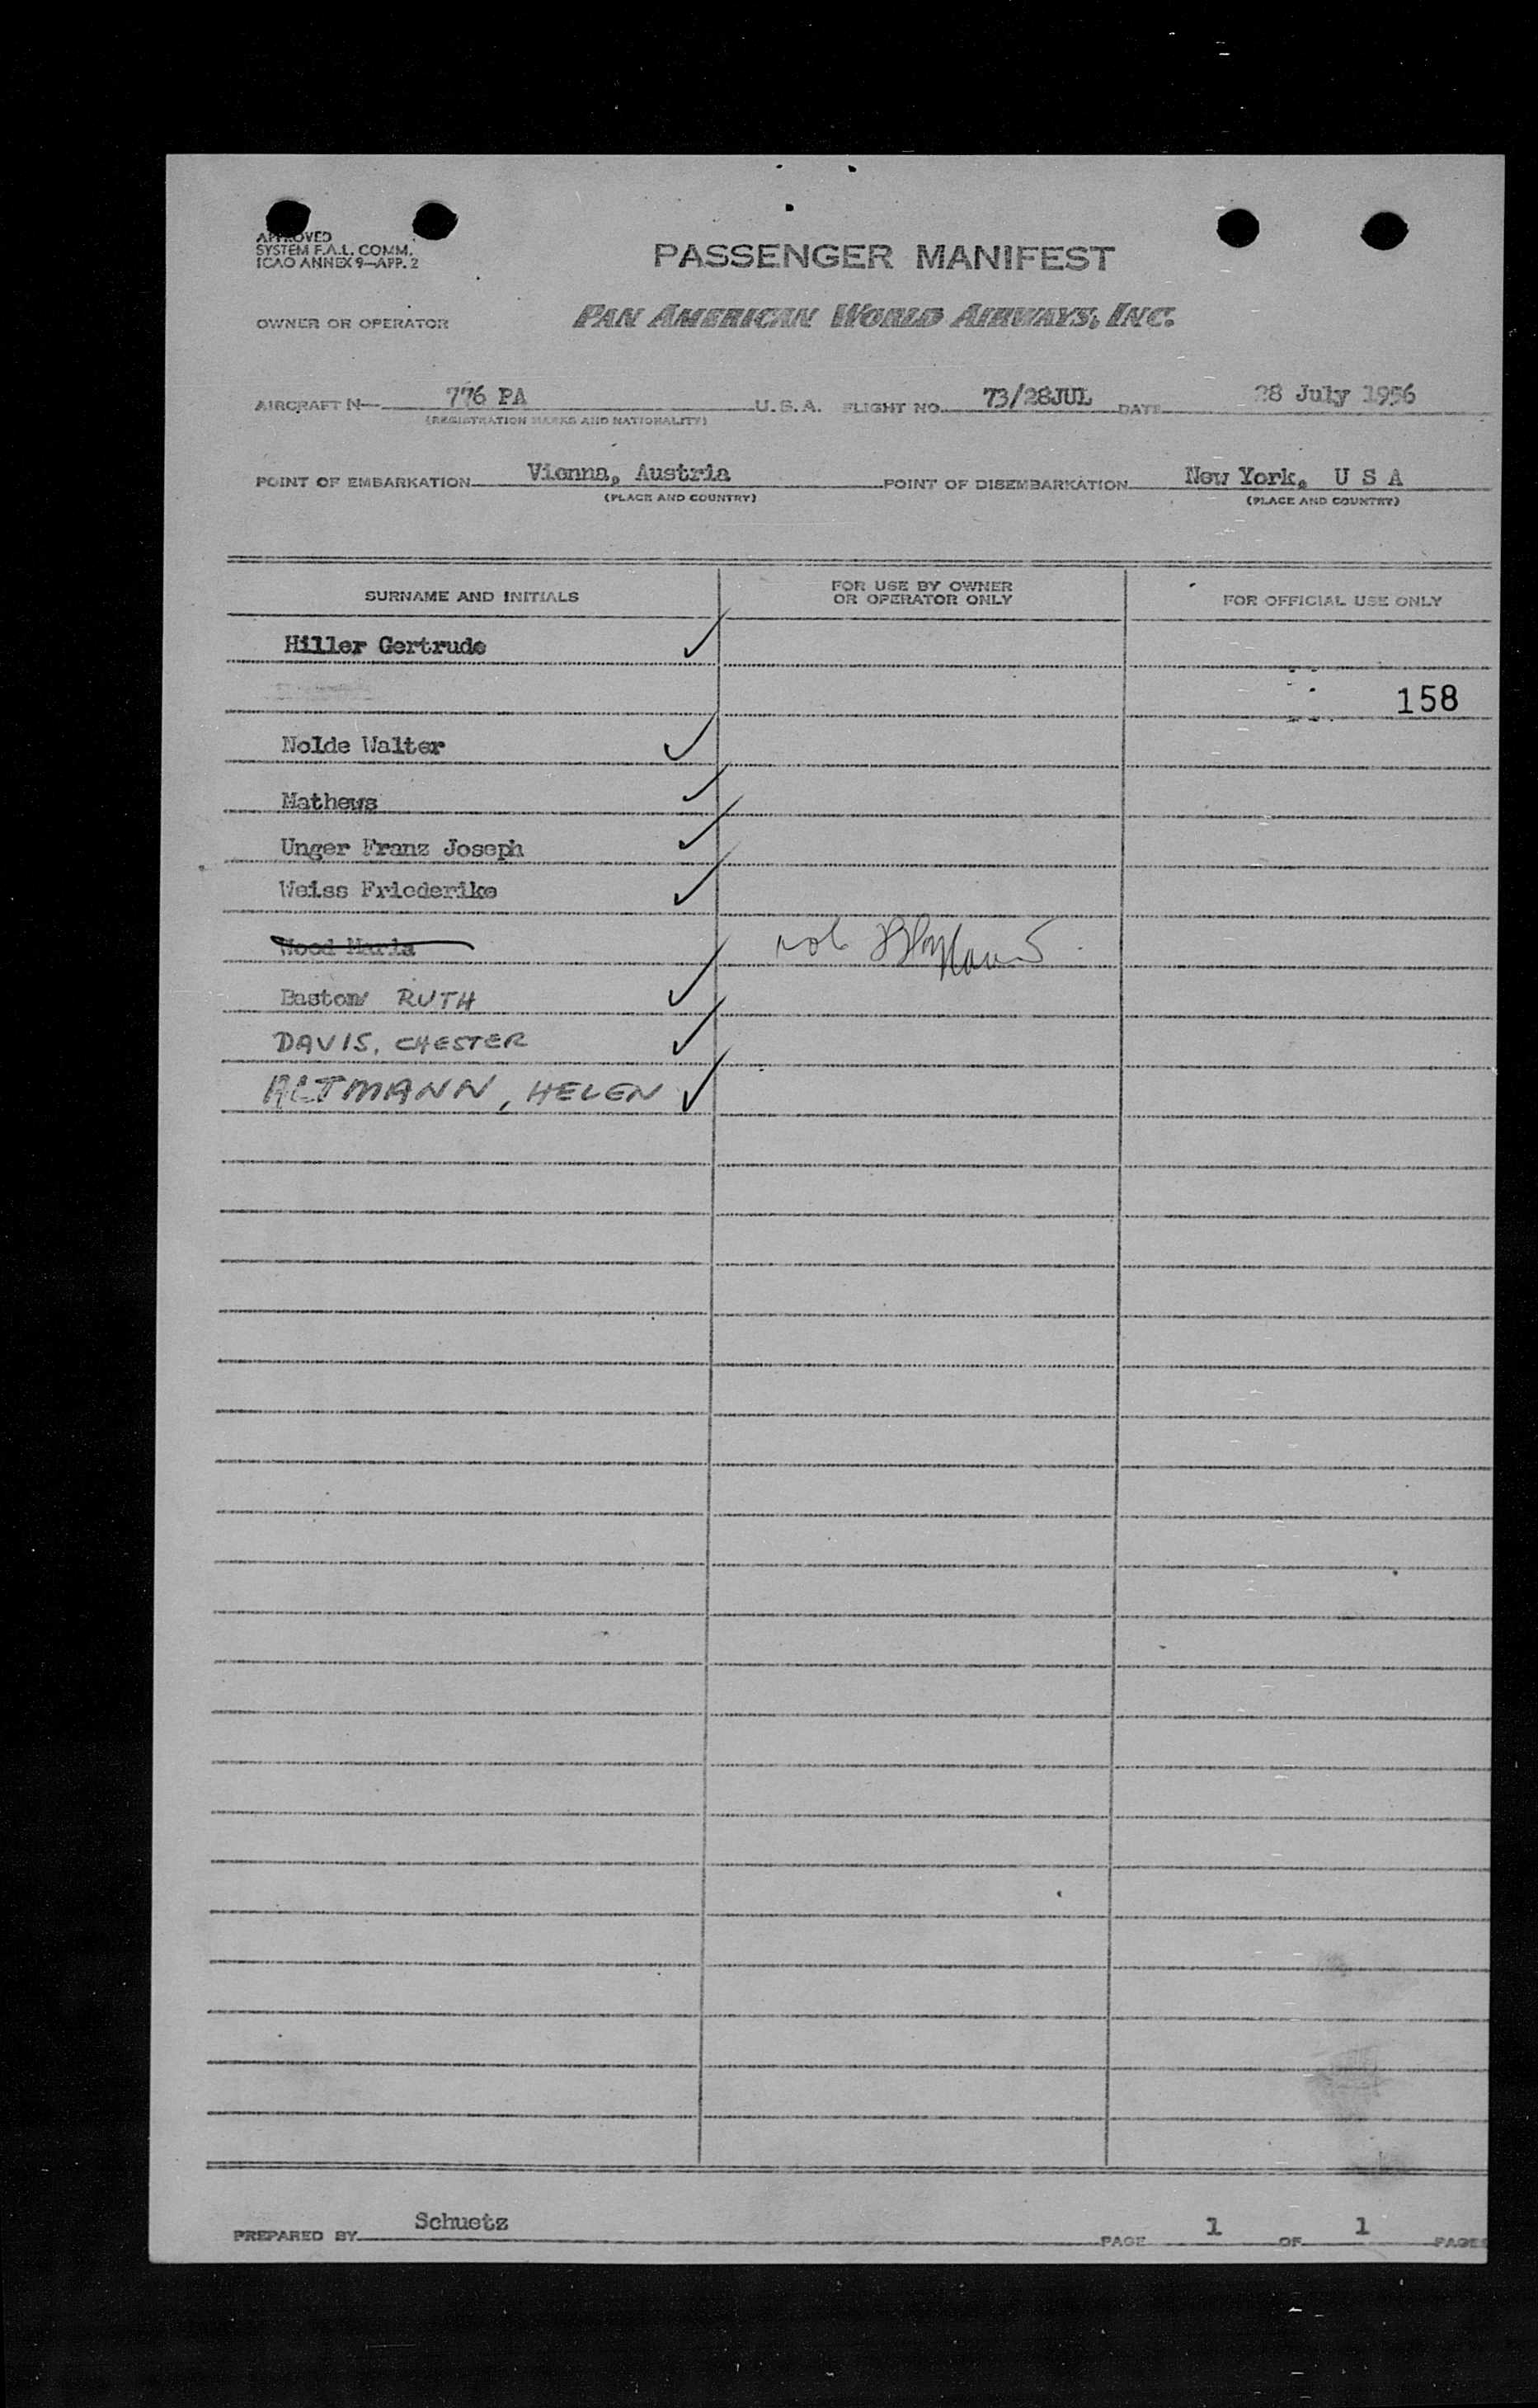 APPROVED
SYSTEM F.A.L. COMM.
ICAO ANNEX 9—APP. 2
PASSENGER MANIFEST
OWNER OR OPERATOR PAN AMERICAN WORLD AIRWAYS, INC.
AIRCRAFT N— 776 PA U.S.A. FLIGHT NO. 73/28JUL DATE 28 July 1956
(REGISTRATION MARKS AND NATIONALITY)
POINT OF EMBARKATION Vienna, Austria POINT OF DISEMBARKATION New York, U S A
(PLACE AND COUNTRY) (PLACE AND COUNTRY)
SURNAME AND INITIALS FOR USE BY OWNER OR OPERATOR ONLY FOR OFFICIAL USE ONLY
Hiller Gertrude
158
Nolde Walter
Mathews
Unger Franz Joseph
Weiss Friederike
Wood Maria
RUTH
DAVIS, CHESTER
ALTMANN, HELEN
PREPARED BY Schuetz PAGE 1 OF 1 PAGES